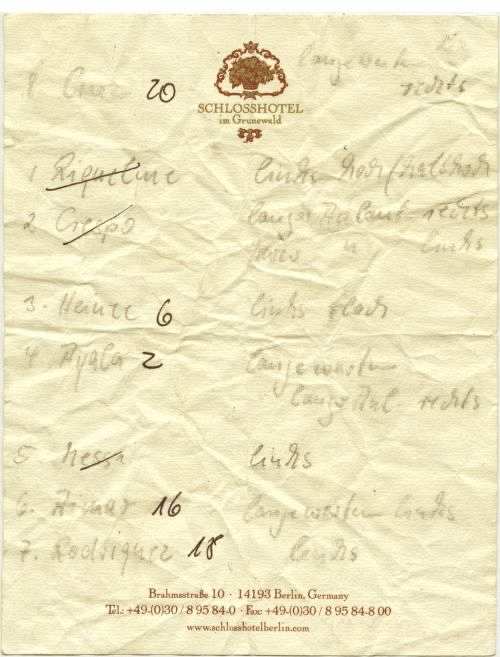 rechts
Cruz 20
SCHLOSSHOTEL
im Grunewald
1 Riquelme links hoch
2 Crespo langer Anlauf rechts
" links
3. Heinze 6 links flach
4 Ayala 2
langer Anl. rechts
5 Messi links
6. Aimar 16 lange warten links
7. Rodriguez 18 links
Brahmsstraße 10 · 14193 Berlin, Germany
Tel.: +49-(0)30 / 8 95 84-0 · Fax: +49-(0)30 / 8 95 84-8 00
www.schlosshotelberlin.com